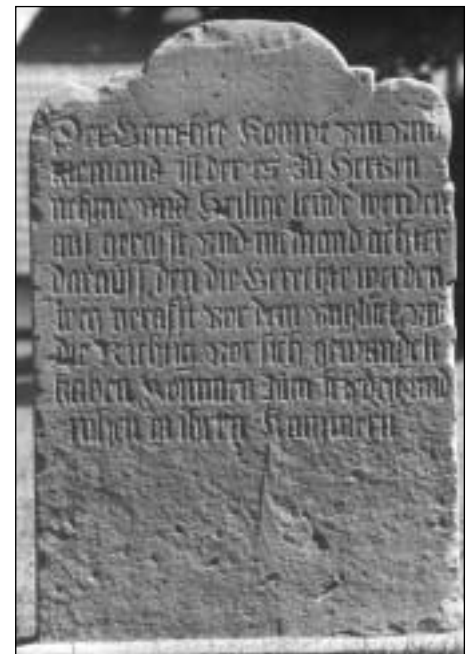 Der Gerechte Kompt vm vnd
niemand ist der es zu Hertzen
nehme vnd Heilige leude werden
auf geraft vnd niemand achtet
darauff den die Gerechte werden
weg geraft vor dem vnglück vnd
die Richtig vor sich gewandelt
haben Kommen zum frieden vnd
ruhen in ihren Kammern